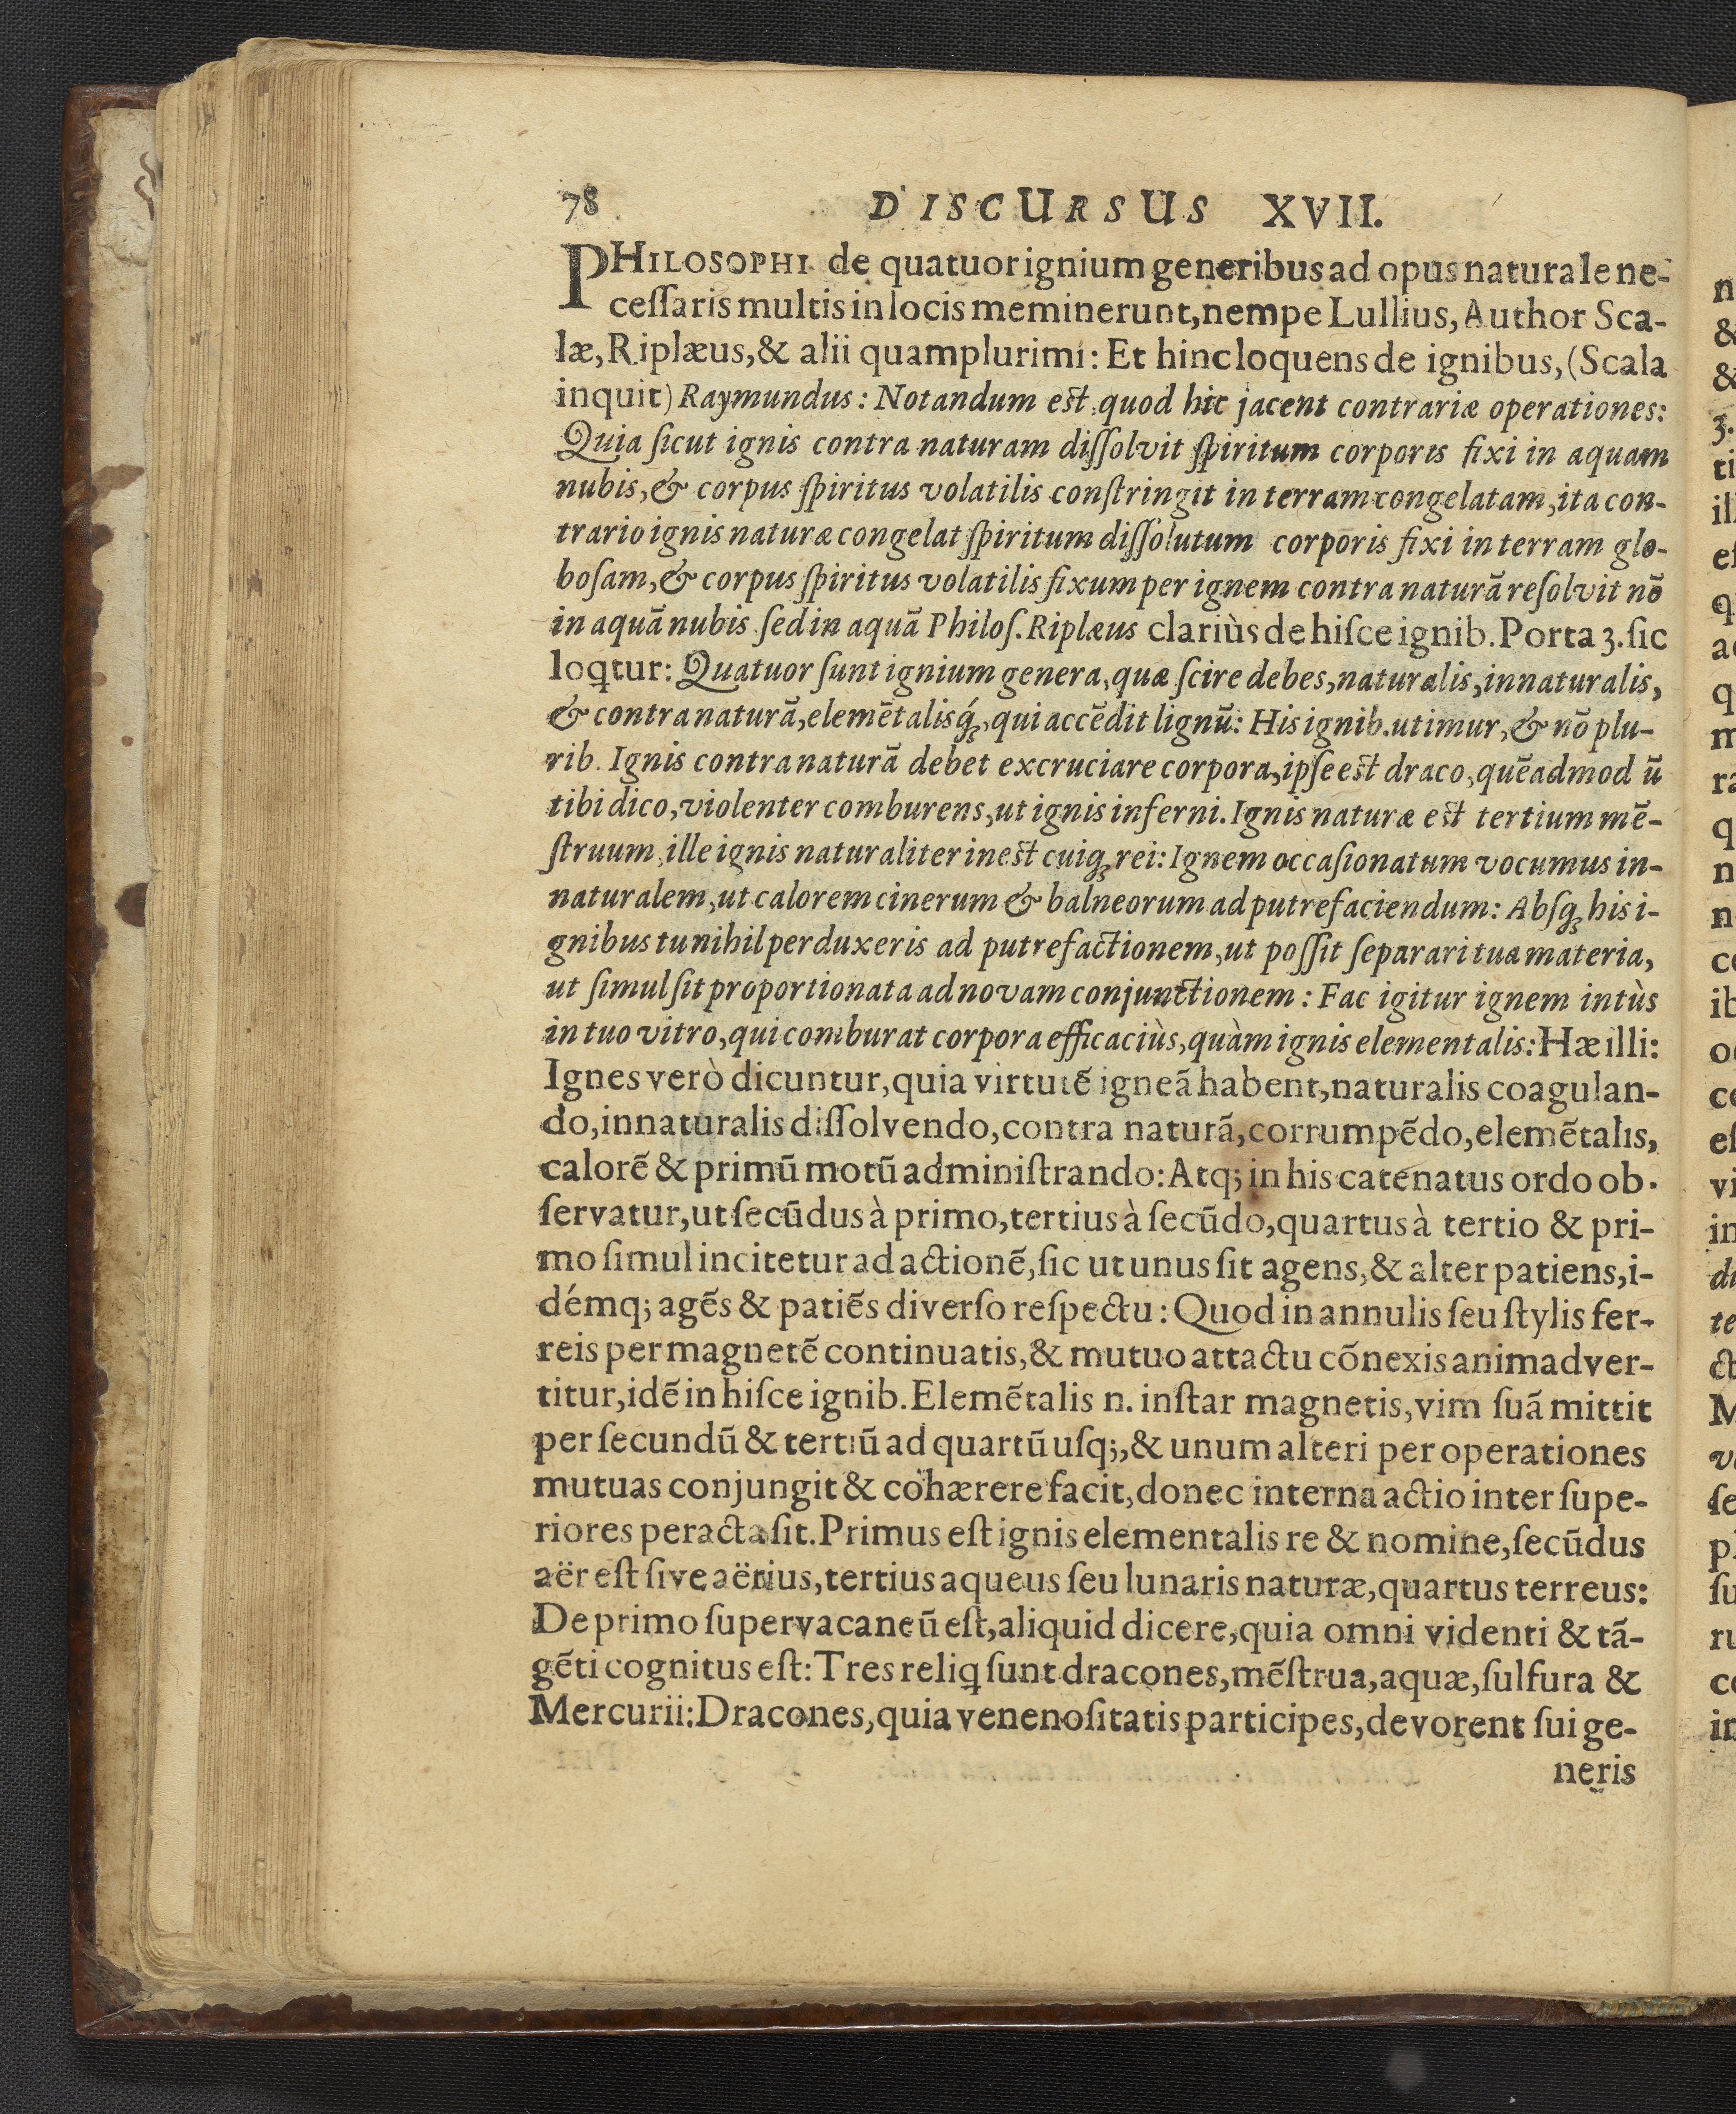 78 DISCURSUS XVII.
PHILOSOPHI de quatuor ignium generibus ad opus naturale ne-
ceſſaris multis in locis meminerunt, nempe Lullius, Author Sca-
læ, Riplæus, & alii quamplurimi: Et hinc loquens de ignibus, (Scala
inquit) Raymundus: Notandum eſt, quod hic jacent contrariæ operationes:
Quia ſicut ignis contra naturam diſſolvit ſpiritum corporis fixi in aquam
nubis, & corpus ſpiritus volatilis conſtringit in terram congelatam, ita con-
trario ignis naturæ congelat ſpiritum diſſolutum corporis fixi in terram glo-
boſam, & corpus ſpiritus volatilis fixum per ignem contra naturã reſolvit nõ
in aquã nubis ſed in aquã Philoſ. Riplæus clariùs de hiſce ignib. Porta 3. ſic
loꝗtur: Quatuor ſunt ignium genera, quæ ſcire debes, naturalis, innaturalis,
& contra naturã, elemẽtalisq́ꝫ, qui accẽdit lignũ: His ignib. utimur, & nõ plu-
rib. Ignis contra naturã debet excruciare corpora, ipſe eſt draco, quẽadmod ũ
tibi dico, violenter comburens, ut ignis inferni. Ignis naturæ eſt tertium mẽ-
ſtruum, ille ignis naturaliter ineſt cuiqꝫ rei: Ignem occaſionatum vocumus in-
naturalem, ut calorem cinerum & balneorum ad putrefaciendum: Abſqꝫ his i-
gnibus tu nihil perduxeris ad putrefactionem, ut poſſit ſeparari tua materia,
ut ſimul ſit proportionata ad novam conjunctionem: Fac igitur ignem intùs
in tuo vitro, qui comburat corpora efficaciùs, quàm ignis elementalis: Hæ illi:
Ignes verò dicuntur, quia virtutẽ igneã habent, naturalis coagulan-
do, innaturalis diſſolvendo, contra naturã, corrumpẽdo, elemẽtalis,
calorẽ & primũ motũ adminiſtrando: Atq; in his catenatus ordo ob-
ſervatur, ut ſecũdus à primo, tertius à ſecũdo, quartus à tertio & pri-
mo ſimul incitetur ad actionẽ, ſic ut unus ſit agens, & alter patiens, i-
démq; agẽs & patiẽs diverſo reſpectu: Quod in annulis ſeu ſtylis fer-
reis per magnetẽ continuatis, & mutuo attactu cõnexis animadver-
titur, idẽ in hiſce ignib. Elemẽtalis n. inſtar magnetis, vim ſuã mittit
per ſecundũ & tertiũ ad quartũ uſq;, & unum alteri per operationes
mutuas conjungit & cohærere facit, donec interna actio inter ſupe-
riores peracta ſit. Primus eſt ignis elementalis re & nomine, ſecũdus
aër eſt ſive aërius, tertius aqueus ſeu lunaris naturæ, quartus terreus:
De primo ſupervacaneũ eſt, aliquid dicere, quia omni videnti & tã-
gẽti cognitus eſt: Tres reliꝗ ſunt dracones, mẽſtrua, aquæ, ſulfura &
Mercurii: Dracones, quia venenoſitatis participes, devorent ſui ge-
neris